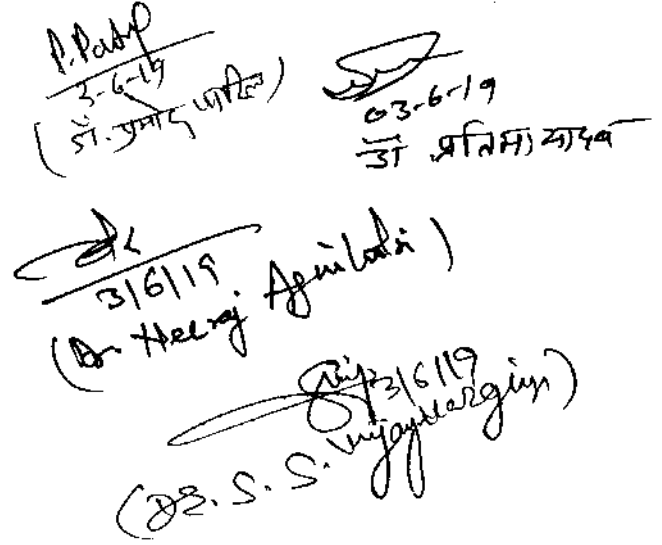 P. Patil
3-6-19
(डॉ. प्रमोद पाटिल)
03-6-19
डॉ प्रतिमा यादव
3/6/19
(Dr. Heeraj Agnihotri)
3/6/19
(DR. S. S. Vijayvargiya)